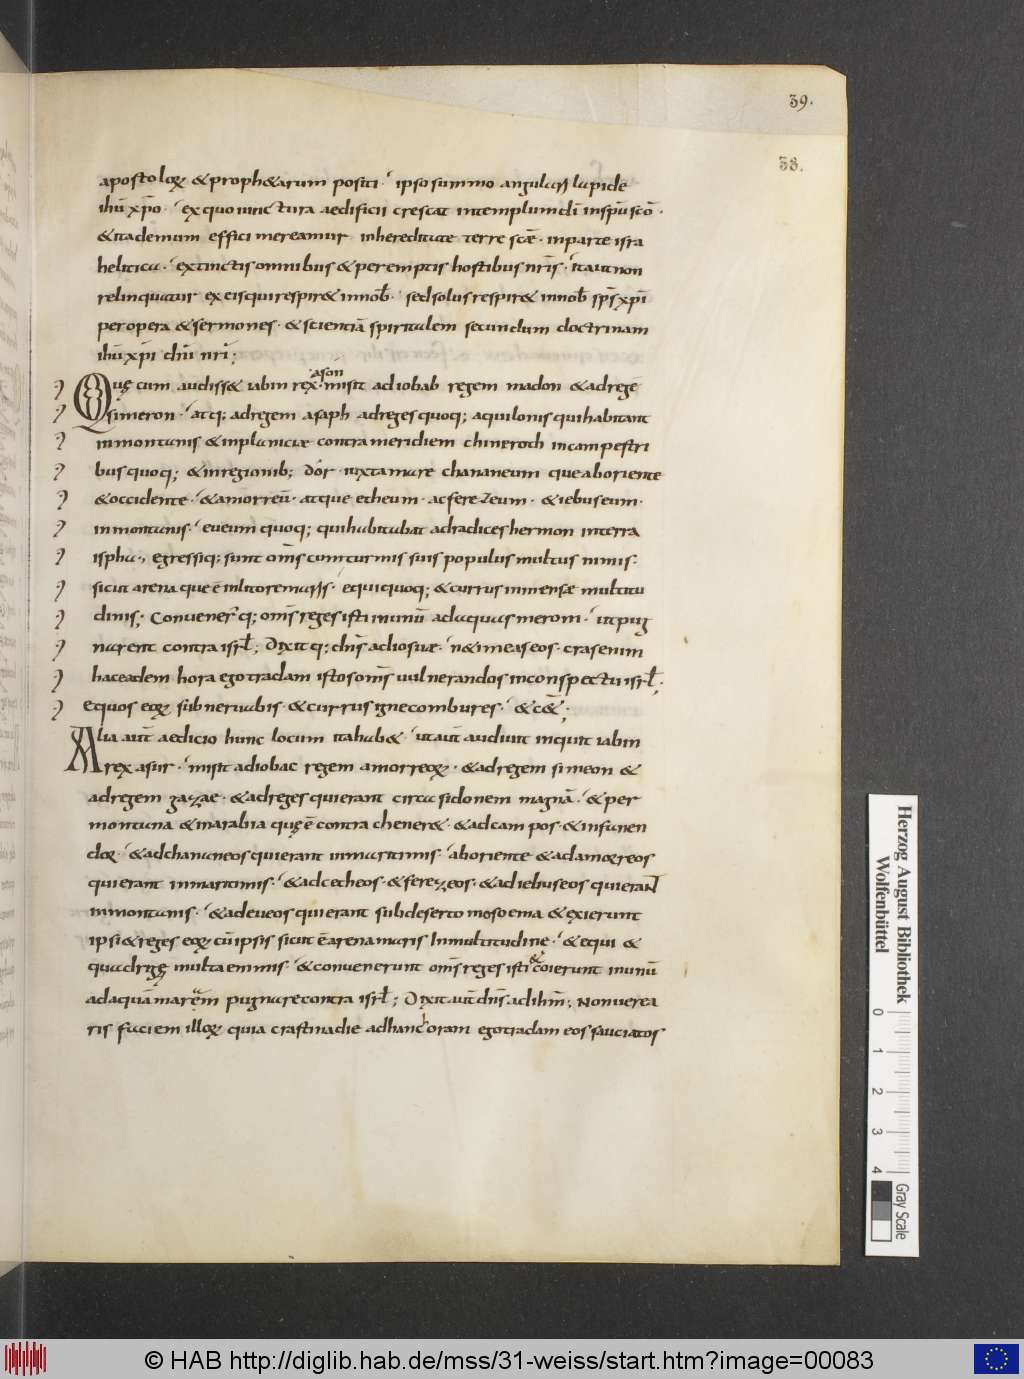 39.
33.
apostoloꝝ & proph&arum positi · ipso summo angulari lapide
ihū xp̄o · ex quo iunctura aedificii crescat in templum dī in sp̄u sc̄o ·
& ita demum effici mereamur in hereditate terre scē · in parte isra
helitica · extinctis omnibus & peremptis hostibus nr̄is · ita ut non
relinquatur ex eis qui respir& in nob̄ · sed solus respir& in nob̄ sp̄s xp̄i
per opera & sermones · & scientiā spiritalem secundum doctrinam
ihū xp̄i dn̄i nr̄i ;
Quę cum audiss& iabin rex asón · misit ad iobab regem madon & ad regē
simeron · atq; ad regem asaph ad reges quoq; aquilonis qui habitant
in montanis & in planiciae contra meridiem chineroth in campestri
bus quoq; & in regionib; dór iuxta mare chananeum que ab oriente
& occidente · & amorreū · atque etheum · ac ferezeum · & iebuseum ·
in montanis · eueum quoq; qui habitabat ad radices hermon in terra
ispha · egressiq; sunt om̄s cum turmis suis populus multus nimis ·
sicut arena que ē in litore maris · equi quoq; & currus inmensae multitu
dinis ; Conueneŕq; om̄s reges isti in unū ad aquas merom · ut pug
narent contra isrl̄ ; Dixitq; dn̄s ad iosuae · ne timeas eos · cras enim
hac eadem hora ego tradam istos om̄s uulnerandos in conspectu isrl̄ ;
equos eoꝝ subneruabis · & currus igne combures · & c&̄ ;
Alia aut̄ aedicio hunc locum ita hab& · ut aut̄ audiuit inquit iabin
rex asur · misit ad iobac regem amorreoꝝ · & ad regem simeon &
ad regem zazae · & ad reges qui erant circa sidonem magnā · & per
montana & in arabia quę ē contra chener& · & ad campos · & in fanen
dor · & ad chananeos qui erant in maritimis · ab oriente & ad amorreos
qui erant in maritimis · & ad cetheos · & ferezeos · & ad iebuseos qui erant
in montanis · & ad eueos qui erant sub deserto mosoema & exierunt
ipsi & reges eoꝝ cū ipsis sicut ē arena maris In multitudine · & equi &
quadrigę multae nimis · & conuenerunt om̄s reges isti & coierunt in unū
ad aquā marem pugnare contra isrl̄ ; Dixit aut̄ dn̄s ad ihm̄ ; Non uerea
ris faciem illoꝝ quia crastina die ad hanc horam ego tradam eos sauciatos
Herzog August Bibliothek
Wolfenbüttel
0 1 2 3 4
Gray Scale
© HAB http://diglib.hab.de/mss/31-weiss/start.htm?image=00083